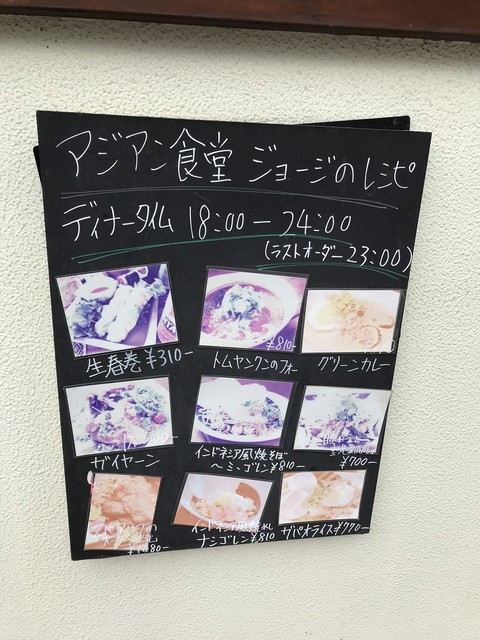 アジアン食堂 ジョージのレシピ
ディナータイム 18:00-24:00
(ラストオーダー23:00)
生春巻¥310-
¥810-
トムヤンクンのフォー
グリーンカレー
ガイヤーン
インドネシア風焼そば
〜ミーゴレン¥810-
¥700-
インドネシア風焼めし
ナシゴレン¥810
ガパオライス¥770-